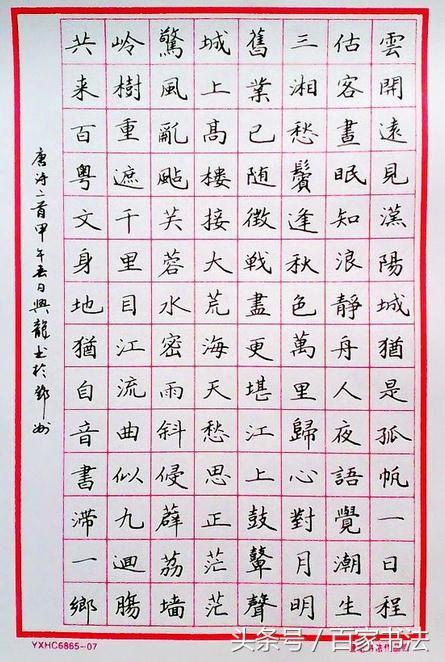 雲開遠見漢陽城猶是孤帆一日程
估客晝眠知浪靜舟人夜語覺潮生
三湘愁鬢逢秋色萬里歸心對月明
舊業已随徵戰盡更堪江上鼓鼙聲
城上髙樓接大荒海天愁思正茫茫
驚風亂颭芙蓉水密雨斜侵薜荔墙
岭樹重遮千里目江流曲似九迴膓
共来百粤文身地猶自音書滯一鄉
唐诗二首甲午 日興龍书於鄧州
YXHC6865-07
头条号/百家书法